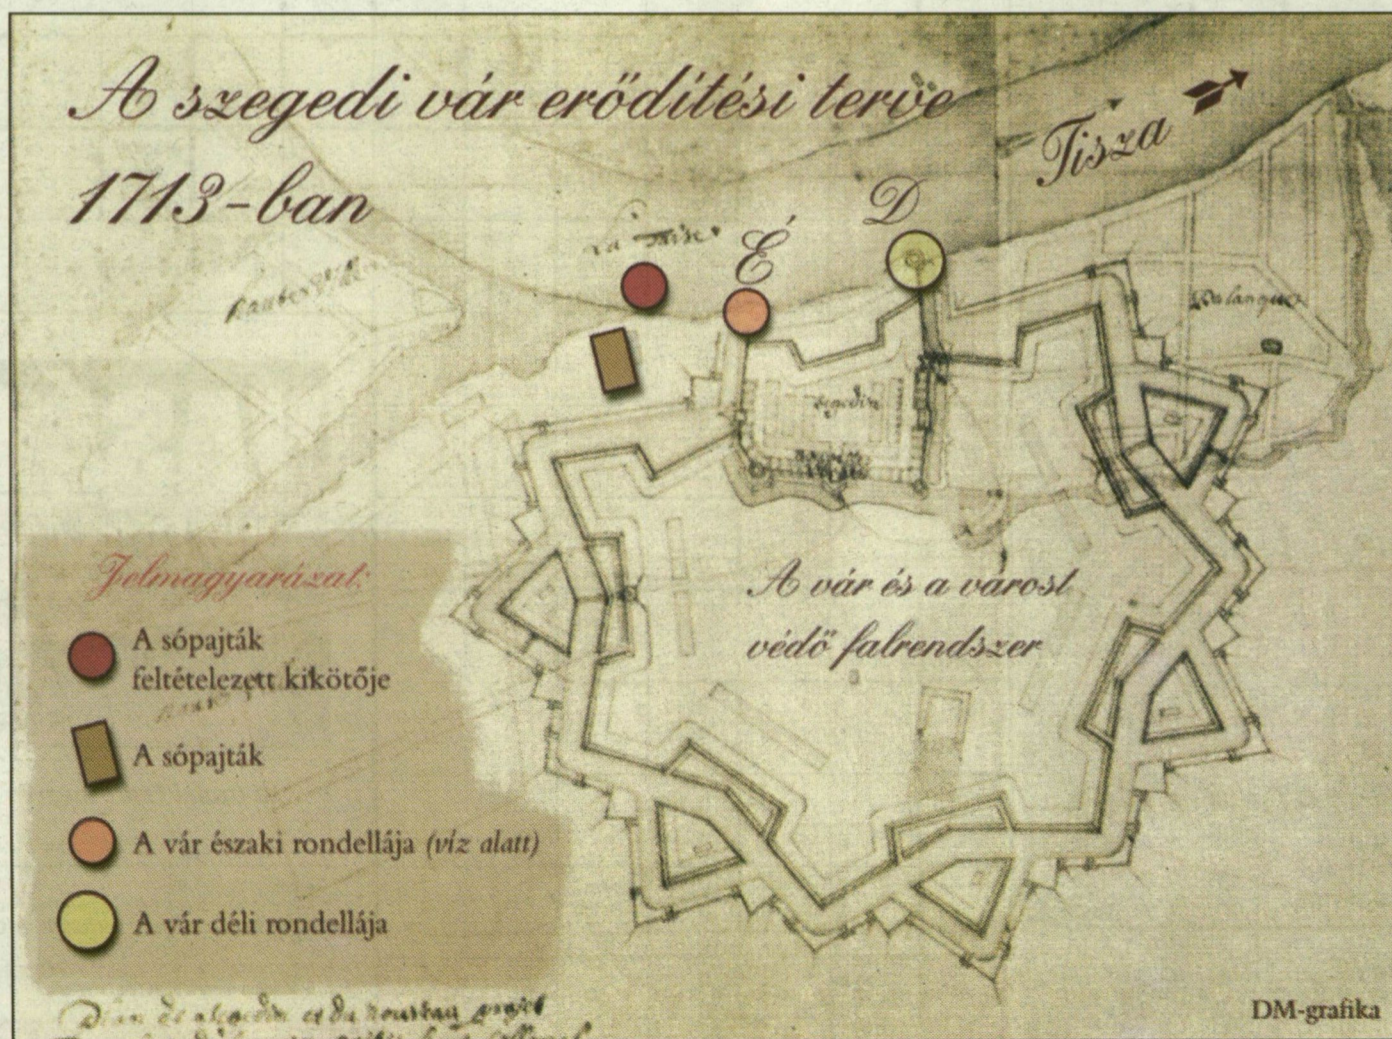 A szegedi vár erődítési terve
1713-ban
Tisza
D
É
La
Palanque
Segedin
A vár és a várost
védő falrendszer
Jelmagyarázat:
A sópajták
feltételezett kikötője
A sópajták
A vár északi rondellája (víz alatt)
A vár déli rondellája
DM-grafika
Plan de et du nouveau projet